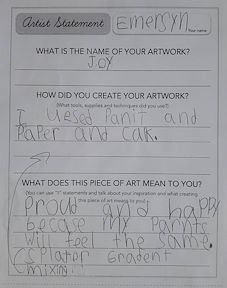 Artist Statement
Emersyn
Your name
WHAT IS THE NAME OF YOUR ARTWORK?
JOY
HOW DID YOU CREATE YOUR ARTWORK?
(What tools, supplies and techniques did you use?)
I Uesed Panit and
Paper and Cak.
WHAT DOES THIS PIECE OF ART MEAN TO YOU?
(You can use "I" statements and talk about your inspiration and what creating
this piece of art means to you)
Proud and happy
Becase my Parints
will feel the same.
SPlater Gradent
mixing!